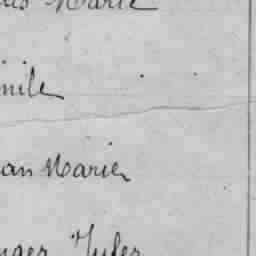 Marie
mile
an Marie
nger Jules